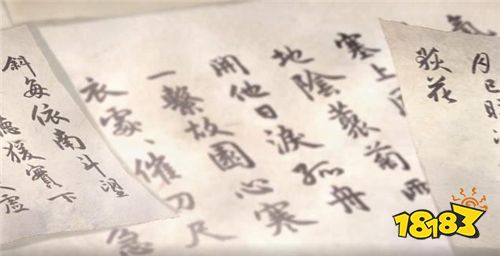 氣
月已映
荻花
塞上風
地陰叢菊兩
開他日淚孤舟
一繫故園心寒
衣處催刀尺
急
斜每依南斗望
聽猿實下
虛
18183